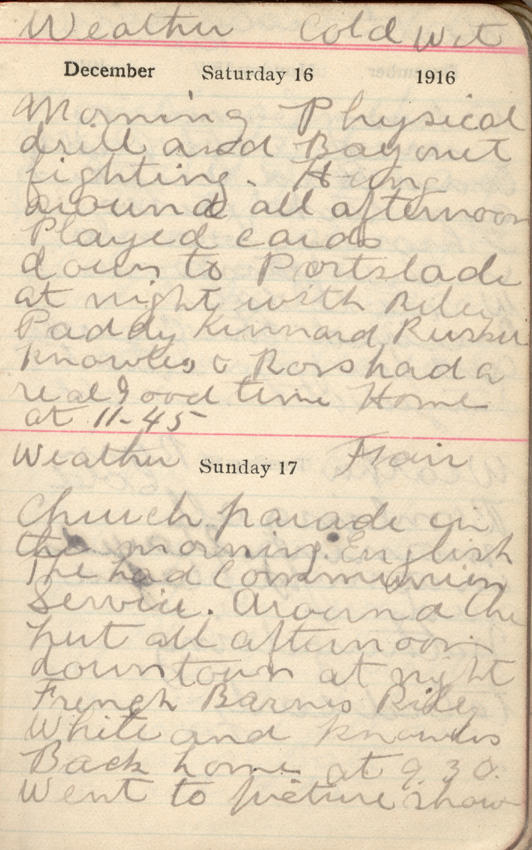 Weather Cold Wet
December Saturday 16 1916
Morning Physical
drill and Bayonet
fighting. Hung
around all afternoon
Played cards
down to Portslade
at night with Riley
Paddy Kinnard Russell
Knowles & Ross had a
real good time Home
at 11-45
Weather Fair
Sunday 17
Church parade in
the morning. English
The had Communion
Service. Around the
hut all afternoon
downtown at night
French Barnes Riley
White and Knowles
Back home at 9.30.
Went to picture show